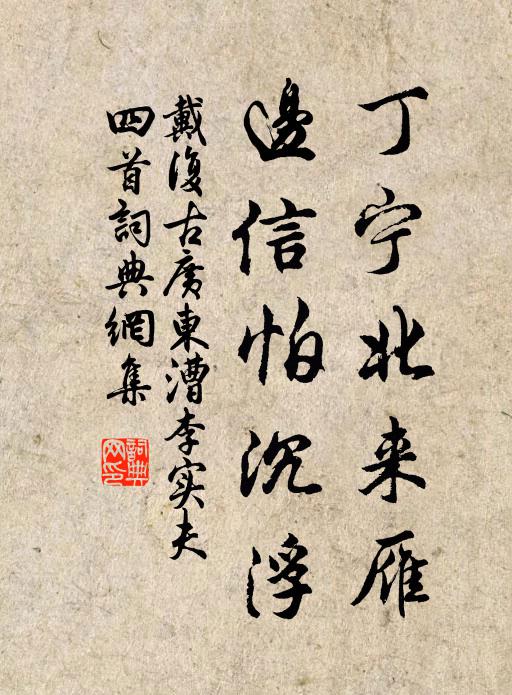 丁宁北来雁
邊信怕沉浮
戴復古廣東漕李实夫
四首詞典網集
詞典
网印